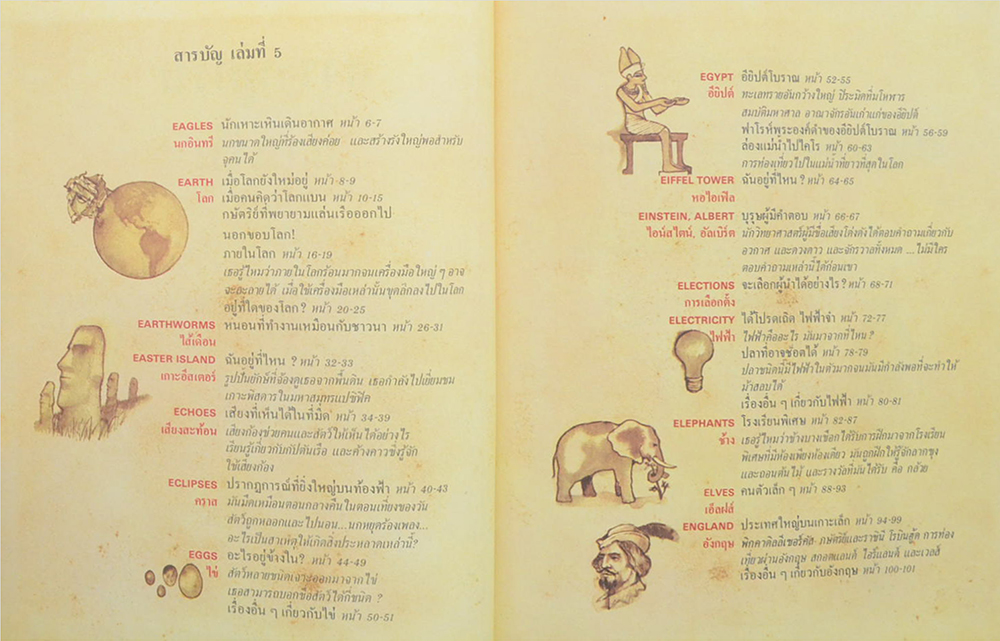 สารบัญ เล่มที่ 5
EAGLES นักเหาะเหินเดินอากาศ หน้า 6-7
นกอินทรี นกขนาดใหญ่ที่ร้องเสียงค่อย และสร้างรังใหญ่พอสำหรับ
จุคนได้
EARTH เมื่อโลกยังใหม่อยู่ หน้า 8-9
โลก เมื่อคนคิดว่าโลกแบน หน้า 10-15
กษัตริย์ที่พยายามแล่นเรือออกไป
นอกขอบโลก!
ภายในโลก หน้า 16-19
เธอรู้ไหมว่าภายในโลกร้อนมากจนเครื่องมือใหญ่ ๆ อาจ
จะละลายได้ เมื่อใช้เครื่องมือเหล่านั้นขุดลึกลงไปในโลก
อยู่ที่ใดของโลก? หน้า 20-25
EARTHWORMS หนอนที่ทำงานเหมือนกับชาวนา หน้า 26-31
ไส้เดือน
EASTER ISLAND ฉันอยู่ที่ไหน ? หน้า 32-33
เกาะอีสเตอร์ รูปปั้นยักษ์ที่จ้องดูเธอจากพื้นดิน เธอกำลังไปเยี่ยมชม
เกาะพิสดารในมหาสมุทรแปซิฟิค
ECHOES เสียงที่เห็นได้ในที่มืด หน้า 34-39
เสียงสะท้อน เสียงก้องช่วยคนและสัตว์ให้เห็นได้อย่างไร
เรียนรู้เกี่ยวกับกัปตันเรือ และค้างคาวซึ่งรู้จัก
ใช้เสียงก้อง
ECLIPSES ปรากฏการณ์ที่ยิ่งใหญ่บนท้องฟ้า หน้า 40-43
คราส มันมืดเหมือนตอนกลางคืนในตอนเที่ยงของวัน
สัตว์ถูกหลอกและไปนอน...นกหยุดร้องเพลง...
อะไรเป็นสาเหตุให้เกิดสิ่งประหลาดเหล่านี้?
EGGS อะไรอยู่ข้างใน? หน้า 44-49
ไข่ สัตว์หลายชนิดเจาะออกมาจากไข่
เธอสามารถบอกชื่อสัตว์ได้กี่ชนิด ?
เรื่องอื่น ๆ เกี่ยวกับไข่ หน้า 50-51
EGYPT อียิปต์โบราณ หน้า 52-55
อียิปต์ ทะเลทรายอันกว้างใหญ่ ปิระมิดที่มโหฬาร
สมบัติมหาศาล อาณาจักรอันเก่าแก่ของอียิปต์
ฟาโรห์พระองค์ดำของอียิปต์โบราณ หน้า 56-59
ล่องแม่น้ำไปไคโร หน้า 60-63
การท่องเที่ยวไปในแม่น้ำที่ยาวที่สุดในโลก
EIFFEL TOWER ฉันอยู่ที่ไหน ? หน้า 64-65
หอไอเฟิล
EINSTEIN, ALBERT บุรุษผู้มีคำตอบ หน้า 66-67
ไอน์สไตน์, อัลเบิร์ต นักวิทยาศาสตร์ผู้มีชื่อเสียงโด่งดังได้ตอบคำถามเกี่ยวกับ
อวกาศ และดวงดาว และจักรวาลทั้งหมด ...ไม่มีใคร
ตอบคำถามเหล่านี้ได้ก่อนเขา
ELECTIONS จะเลือกผู้นำได้อย่างไร ? หน้า 68-71
การเลือกตั้ง
ELECTRICITY ได้โปรดเถิด ไฟฟ้าจ๋า หน้า 72-77
ไฟฟ้า ไฟฟ้าคืออะไร มันมาจากที่ไหน ?
ปลาที่อาจช๊อตได้ หน้า 78-79
ปลาชนิดนี้มีไฟฟ้าในตัวมากจนมันมีกำลังพอที่จะทำให้
ม้าสลบได้
เรื่องอื่น ๆ เกี่ยวกับไฟฟ้า หน้า 80-81
ELEPHANTS โรงเรียนพิเศษ หน้า 82-87
ช้าง เธอรู้ไหมว่าช้างบางเชือกได้รับการฝึกมาจากโรงเรียน
พิเศษที่มีห้องเพียงห้องเดียว มันถูกฝึกให้รู้จักลากซุง
และถอนต้นไม้ และรางวัลที่มันได้รับ คือ กล้วย
ELVES คนตัวเล็ก ๆ หน้า 88-93
เอ็ลฟส์
ENGLAND ประเทศใหญ่บนเกาะเล็ก หน้า 94-99
อังกฤษ พิกคาดิลลี่เซอร์คัส กษัตริย์และราชินี โรบินฮู้ด การท่อง
เที่ยวผ่านอังกฤษ สกอตแลนด์ ไอร์แลนด์ และเวลส์
เรื่องอื่น ๆ เกี่ยวกับอังกฤษ หน้า 100-101